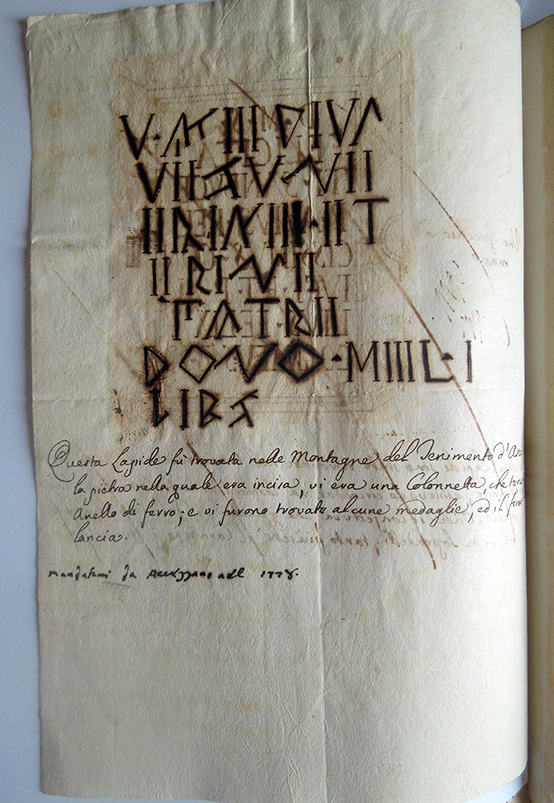 V·AIIIDIVA
VIISVNII
IIRINIII·IIT
IIRINII
PATRII
DONO·MIIIL·I
LIBS
Questa Lapide fù trovata nelle Montagne del Tenimento d'
la pietra nella quale era incisa, vi era una Colonnetta, che
Anello di ferro; e vi furono trovate alcune medaglie, ed il
lancia.
mandatami da nel 1778.